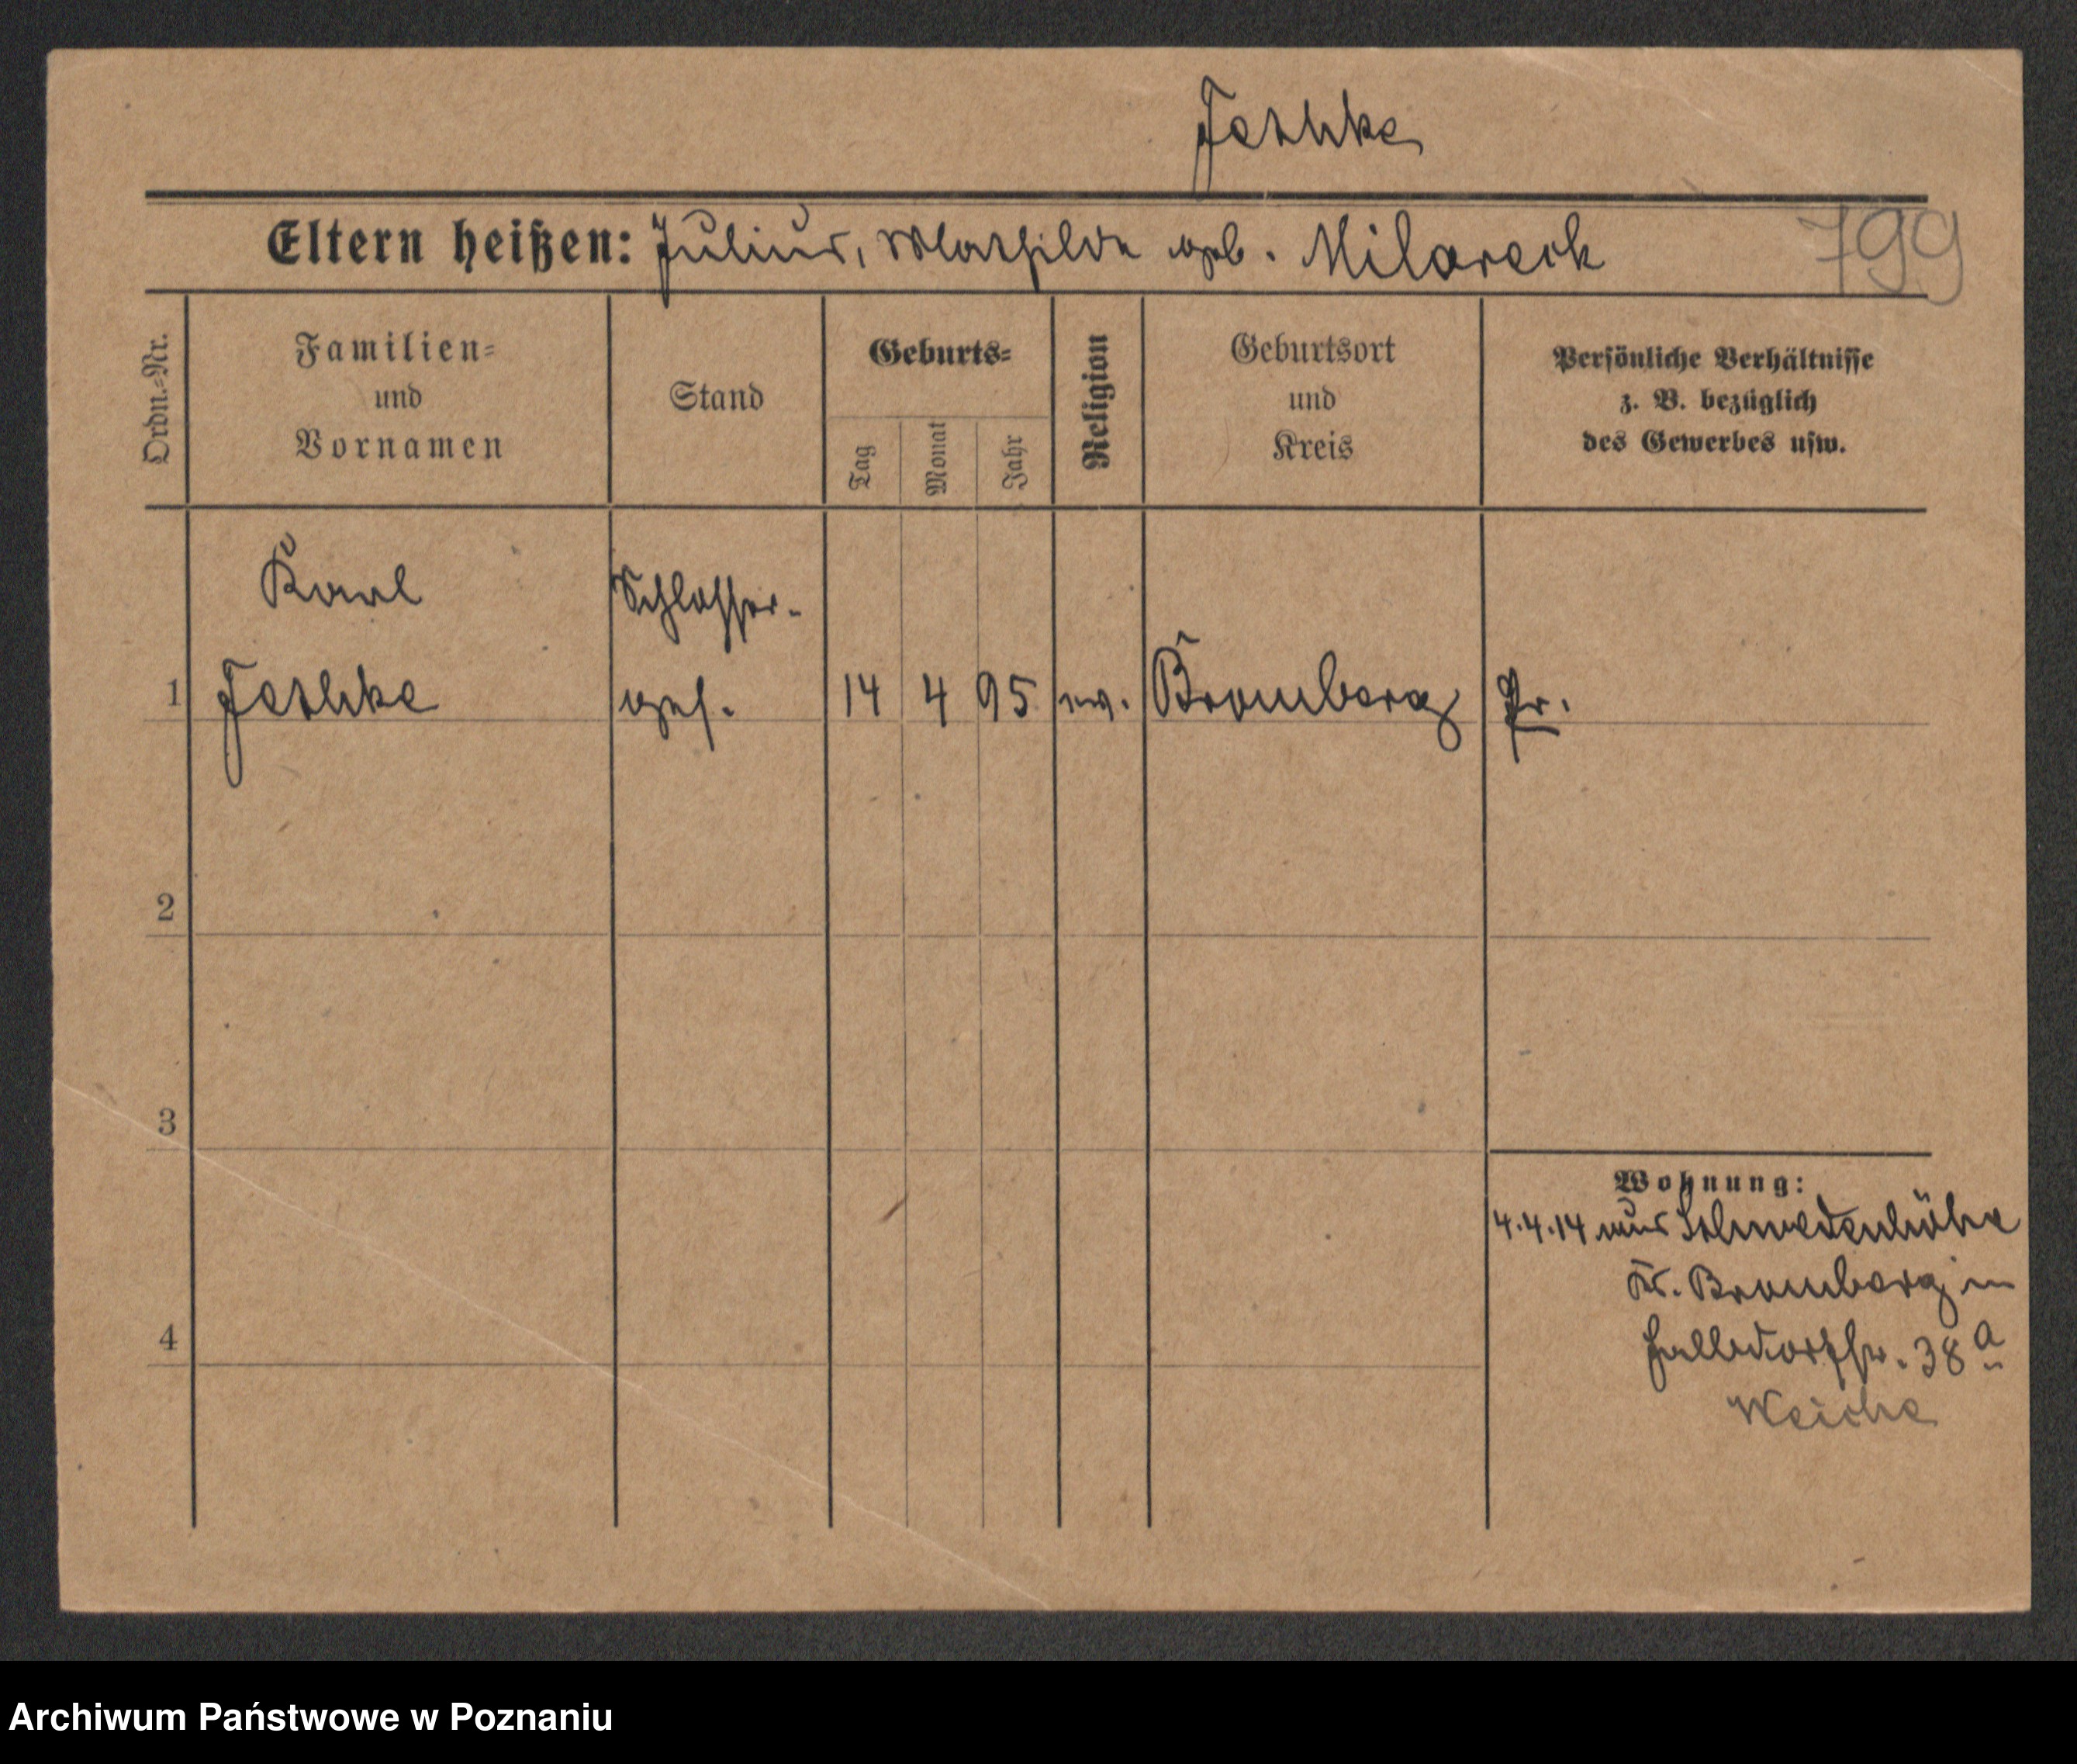 Jeschke
Eltern heißen: Julius, Mathilde geb. Milareck
799
Ordn.-Nr.
Familien-
und
Vornamen
Stand
Geburts-
Tag
Monat
Jahr
Religion
Geburtsort
und
Kreis
Persönliche Verhältnisse
z. B. bezüglich
des Gewerbes usw.
Karl
Schlosser-
1
Jeschke
ges.
14
4
95
ev.
Bromberg
Pr.
2
3
4
Wohnung:
4.4.14 aus Schwedenhöhe
Kr. Bromberg in
38a
Weiche
Archiwum Państwowe w Poznaniu